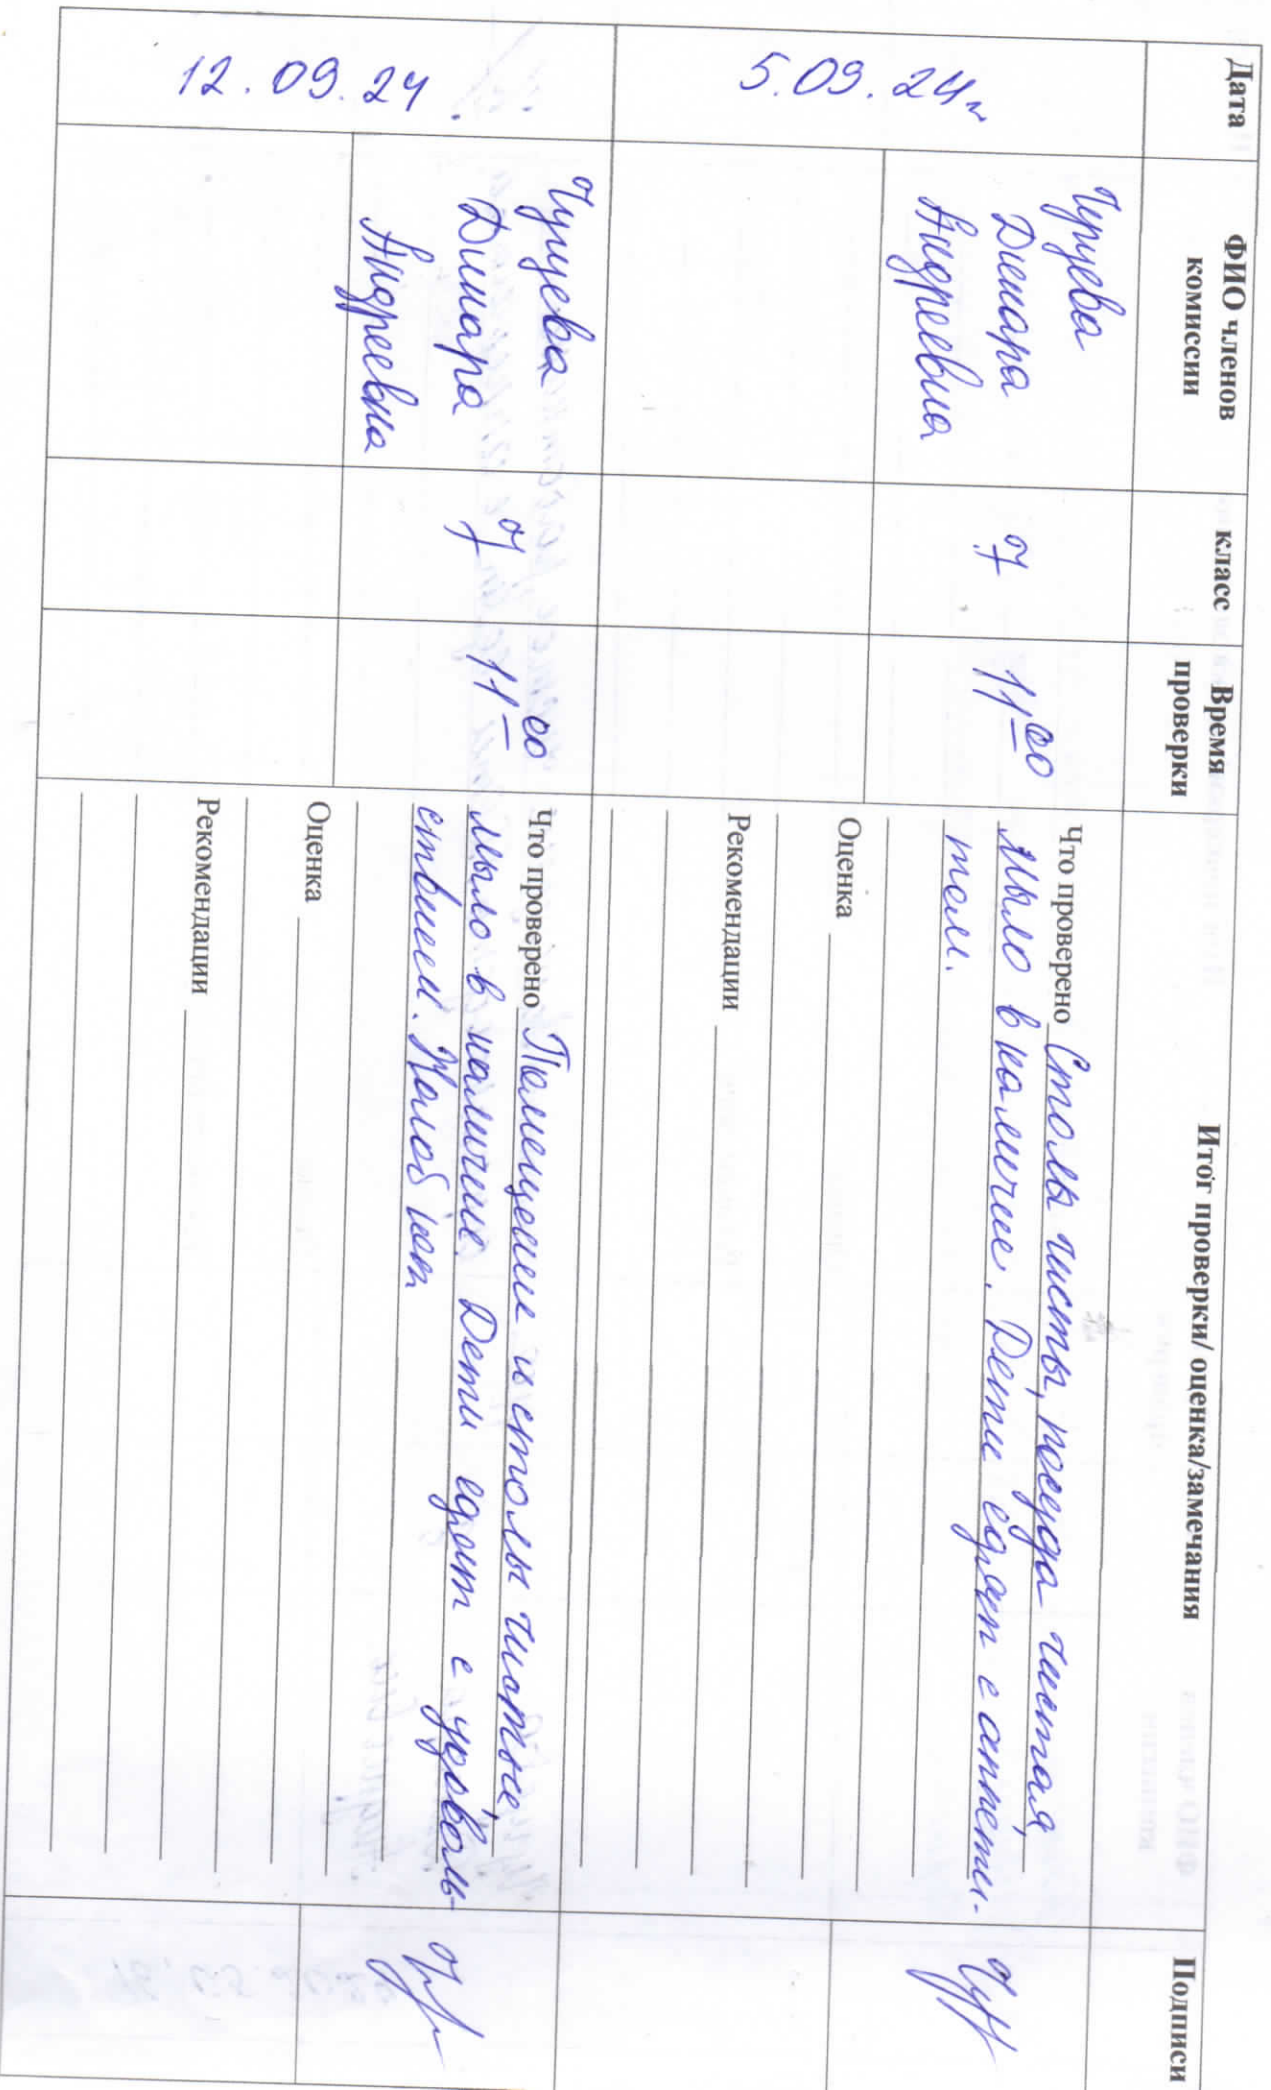 Дата
ФИО членов
комиссии
класс
Время
проверки
Итог проверки/ оценка/замечания
Подписи
5.09.24г
Динара
Андреевна
7
11 00
Что проверено Столы чисты, посуда чистая,
мыло в наличие. Дети едят с аппети-
том.
Оценка
Рекомендации
12.09.24.
Динара
Андреевна
7
11 00
Что проверено Помещение и столы чистые,
мыло в наличие. Дети едят с удоволь-
ствием. Жалоб нет
Оценка
Рекомендации